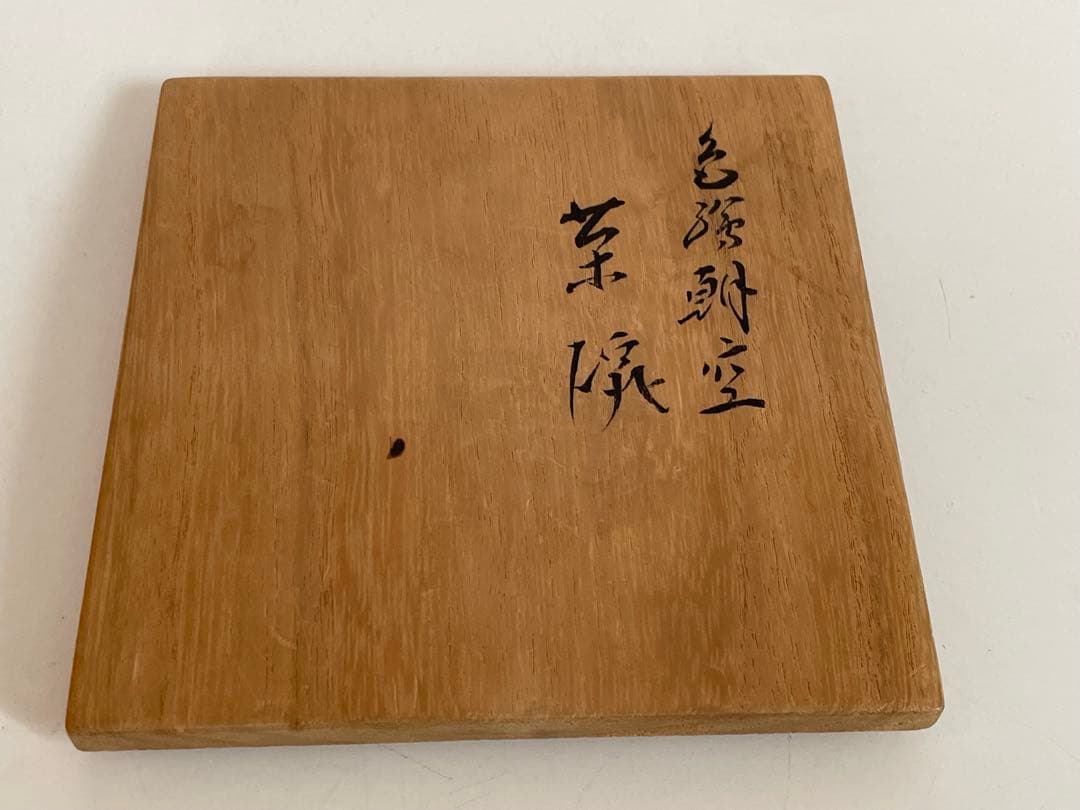 色絵朝空
茶碗